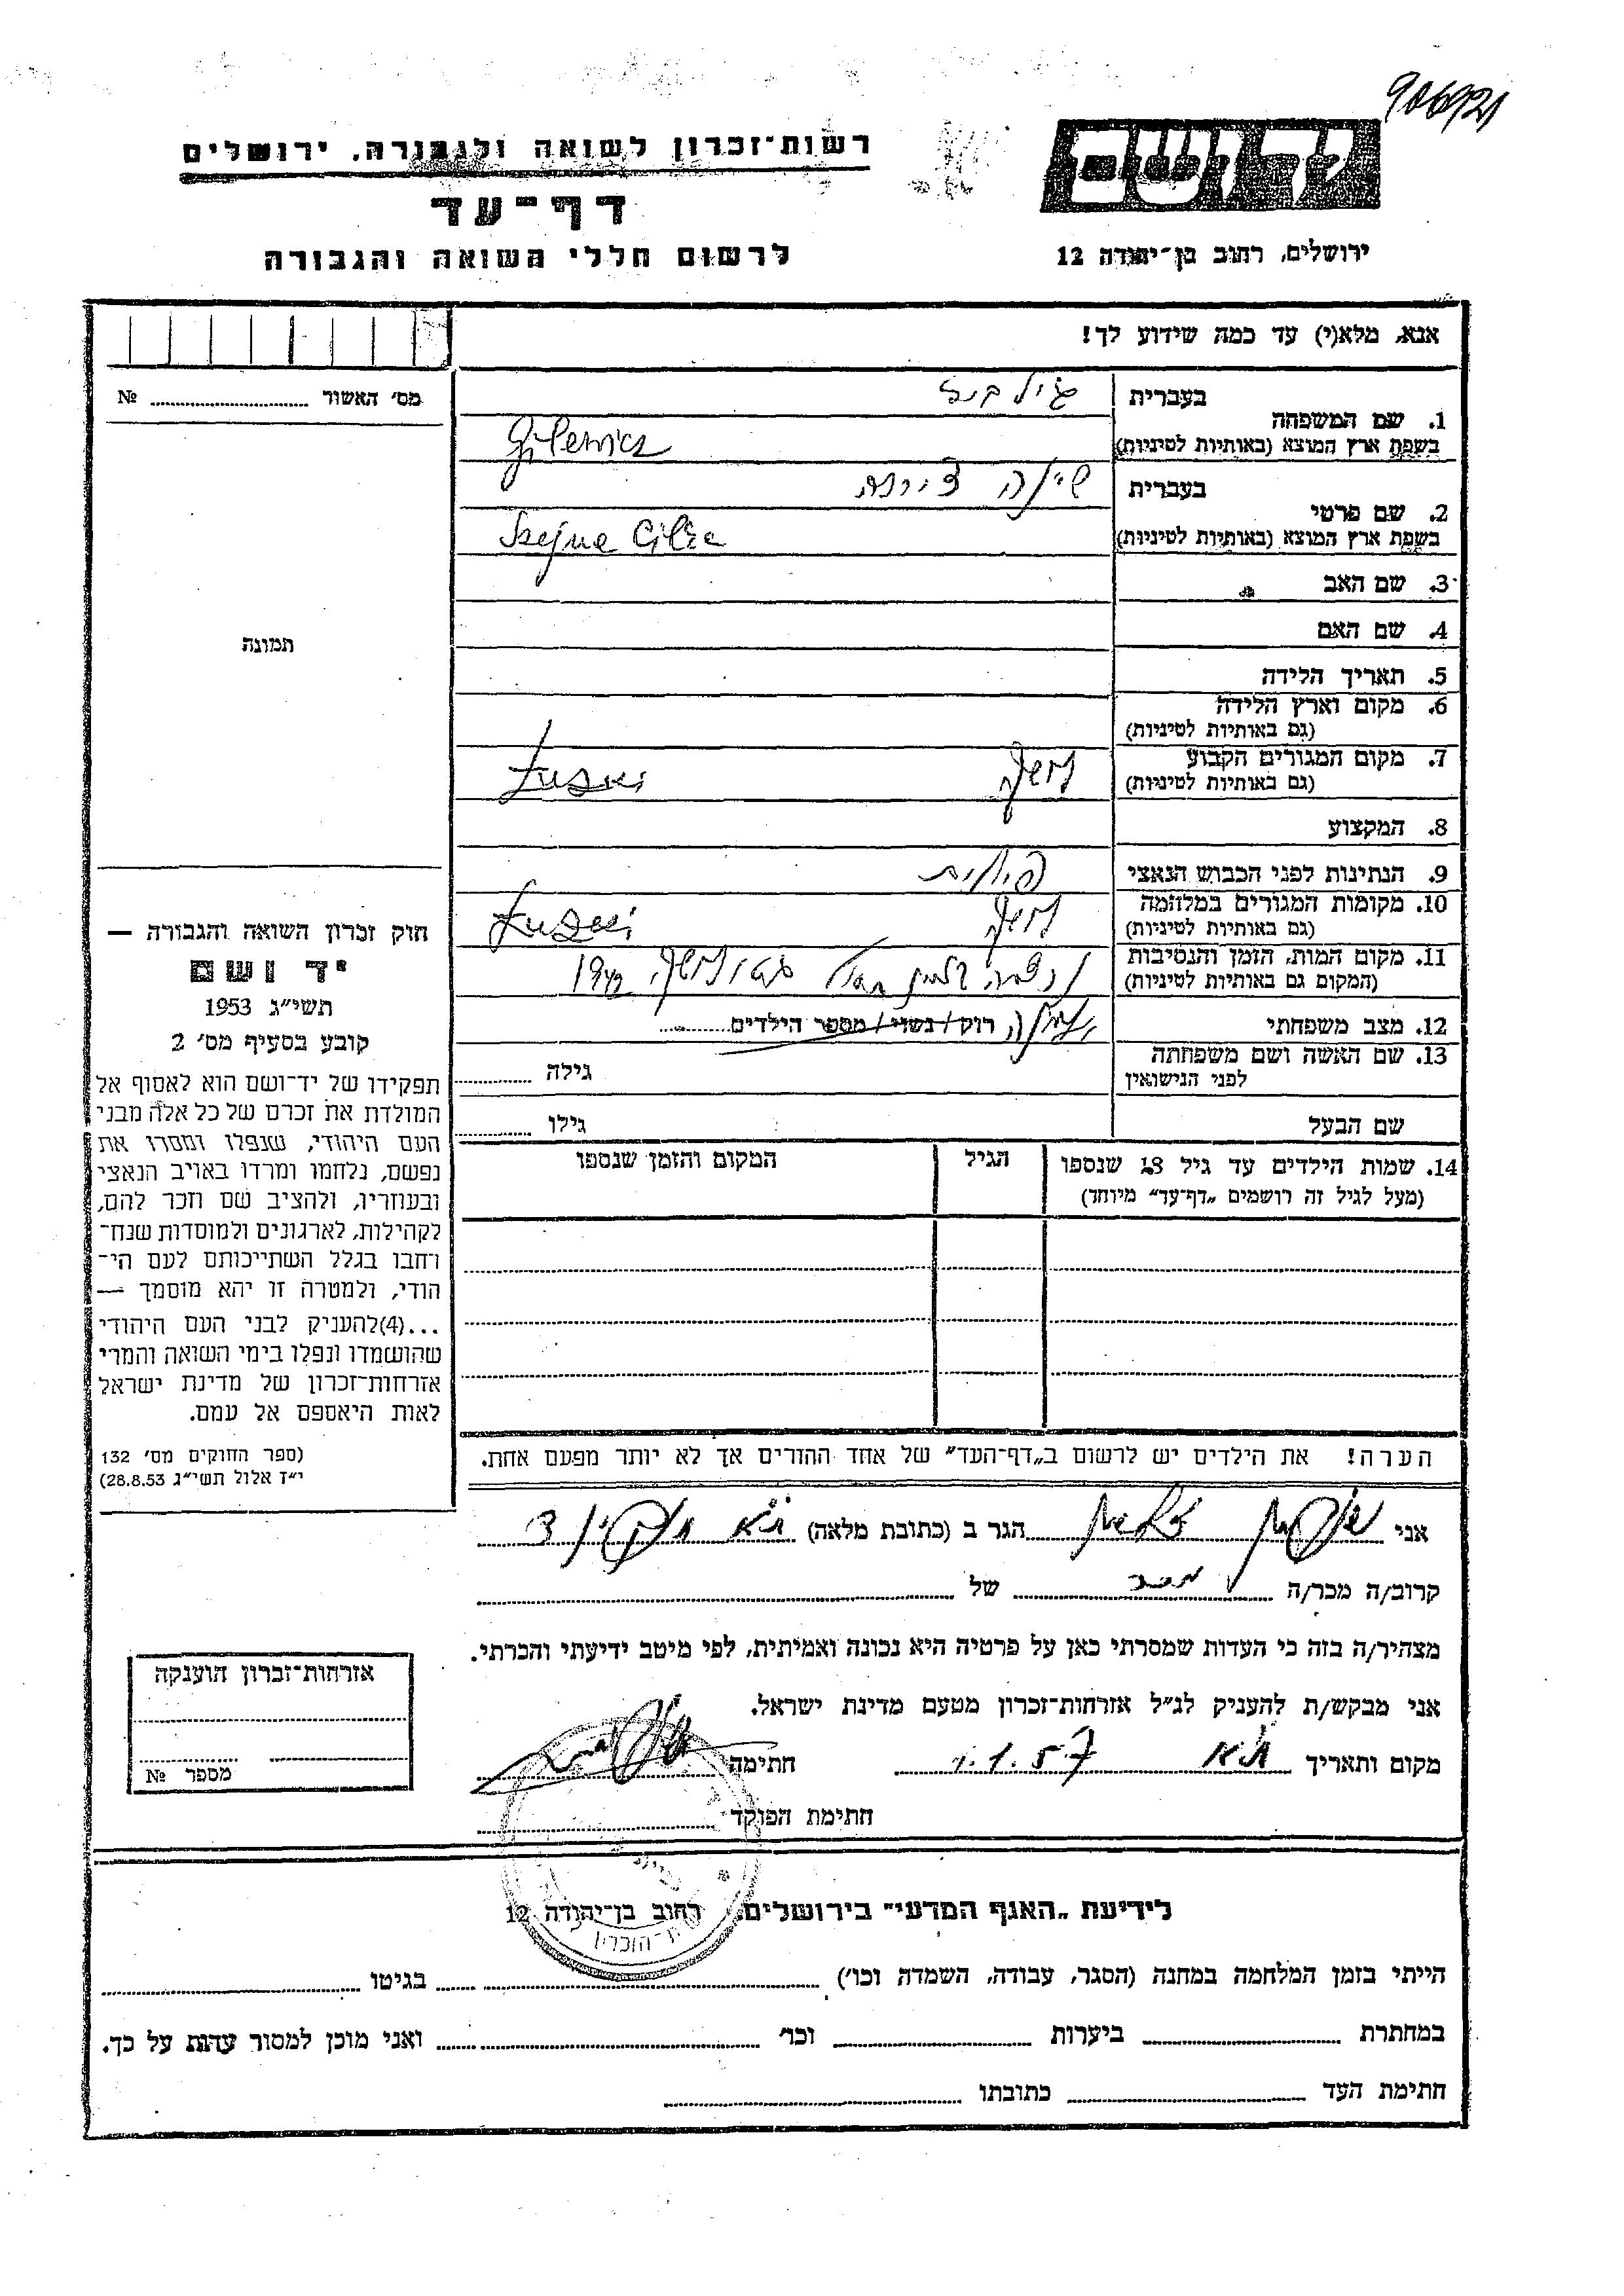 906/21
יד ושם
רשות־זכרון לשואה ולגבורה, ירושלים
דף־עד
לרשום חללי השואה והגבורה
ירושלים, רחוב בן־יהודה 12
אנא, מלא(י) עד כמה שידוע לך!
מס׳ האשור № 
תמונה
חוק זכרון השואה והגבורה —
יד ושם
תשי״ג 1953
קובע בסעיף מס׳ 2
תפקידו של יד־ושם הוא לאסוף אל
המולדת את זכרם של כל אלה מבני
העם היהודי, שנפלו ומסרו את
נפשם, נלחמו ומרדו באויב הנאצי
ובעוזריו, ולהציב שם וזכר להם,
לקהילות, לארגונים ולמוסדות שנח־
רחבו בגלל השתייכותם לעם הי־
הודי, ולמטרה זו יהא מוסמך —
...(4)להעניק לבני העם היהודי
שהושמדו ונפלו בימי השואה והמרי
אזרחות־זכרון של מדינת ישראל
לאות היאספם אל עמם.
(ספר החוקים מס׳ 132
י״ז אלול תשי״ג 28.8.53)
1. שם המשפחה
בעברית
בשפת ארץ המוצא (באותיות לטיניות) Gilewicz
2. שם פרטי
בעברית
בשפת ארץ המוצא (באותיות לטיניות) Szejna
3. שם האב
4. שם האם
5. תאריך הלידה
6. מקום וארץ הלידה
(גם באותיות לטיניות)
7. מקום המגורים הקבוע
(גם באותיות לטיניות) Łużki
8. המקצוע
9. הנתינות לפני הכבוש הנאצי פולנית
10. מקומות המגורים במלחמה
(גם באותיות לטיניות) Łużki
11. מקום המות, הזמן והנסיבות
(המקום גם באותיות לטיניות) 1942
12. מצב משפחתי רוק/נשוי/מספר הילדים
13. שם האשה ושם משפחתה
לפני הנישואין גילה
שם הבעל גילו
14. שמות הילדים עד גיל 18 שנספו
(מעל לגיל זה רושמים „דף־עד״ מיוחד)
הגיל
המקום והזמן שנספו
הערה! את הילדים יש לרשום ב„דף־העד״ של אחד ההורים אך לא יותר מפעם אחת.
אני הגר ב (כתובת מלאה) ת״א
קרוב/ה מכר/ה מכר של
מצהיר/ה בזה כי העדות שמסרתי כאן על פרטיה היא נכונה ואמיתית, לפי מיטב ידיעתי והכרתי.
אני מבקש/ת להעניק לנ״ל אזרחות־זכרון מטעם מדינת ישראל.
מקום ותאריך ת״א 1.1.57 חתימה
חתימת הפוקד
אזרחות־זכרון הוענקה
מספר №
לידיעת „האגף המדעי״ בירושלים, רחוב בן־יהודה 12
הייתי בזמן המלחמה במחנה (הסגר, עבודה, השמדה וכו׳) בגיטו
במחתרת ביערות וכו׳ ואני מוכן למסור עדות על כך.
חתימת העד כתובתו